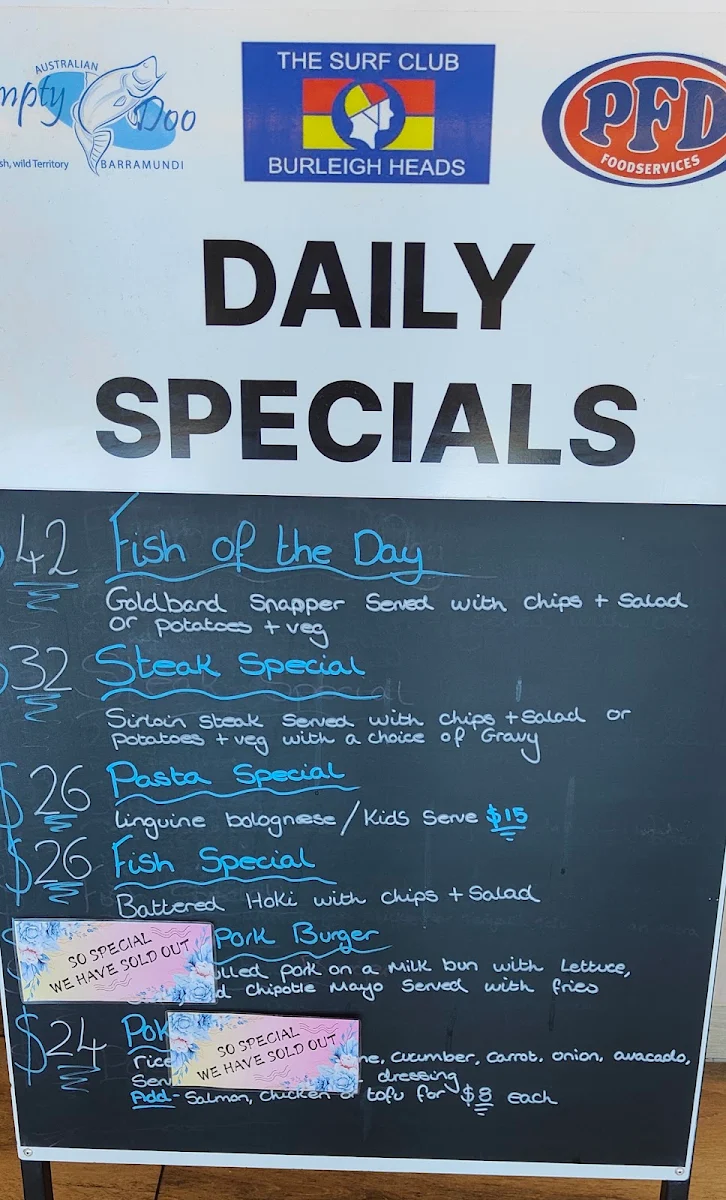 AUSTRALIAN
Doo
BARRAMUNDI
wild Territory
THE SURF CLUB
BURLEIGH HEADS
PFD
FOODSERVICES
DAILY
SPECIALS
42 Fish of the Day
Goldband Snapper Served with chips + Salad
or potatoes + veg
32 Steak Special
Sirloin Steak Served with chips + Salad or
Potatoes + veg with a choice of Gravy
$26 Pasta Special
Linguine bolognese / Kids Serve $15
$26 Fish Special
Battered Hoki with chips + Salad
Pork Burger
SO SPECIAL
WE HAVE SOLD OUT
pork on a Milk bun with Lettuce,
Chipotle Mayo Served with fries
$24
SO SPECIAL
WE HAVE SOLD OUT
rice cucumber, carrot, onion, avacado,
dressing
Add - Salmon, chicken or tofu for $8 each